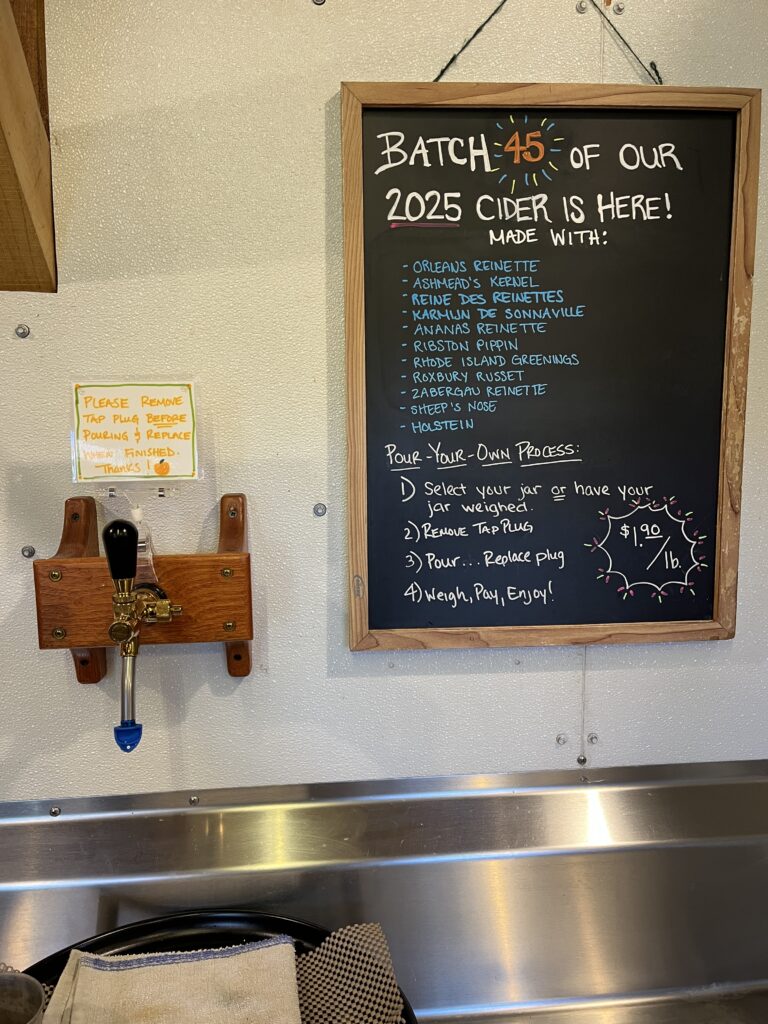 PLEASE REMOVE
TAP PLUG BEFORE
POURING & REPLACE
WHEN FINISHED.
Thanks!
BATCH 45 OF OUR
2025 CIDER IS HERE!
MADE WITH:
- ORLEANS REINETTE
- ASHMEAD'S KERNEL
- REINE DES REINETTES
- KARMIJN DE SONNAVILLE
- ANANAS REINETTE
- RIBSTON PIPPIN
- RHODE ISLAND GREENINGS
- ROXBURY RUSSET
- ZABERGAU REINETTE
- SHEEP'S NOSE
- HOLSTEIN
POUR-YOUR-OWN PROCESS:
1) Select your jar or have your
jar weighed.
2) REMOVE TAP PLUG
3) Pour... Replace plug
4) Weigh, Pay, Enjoy!
$1.90/lb.